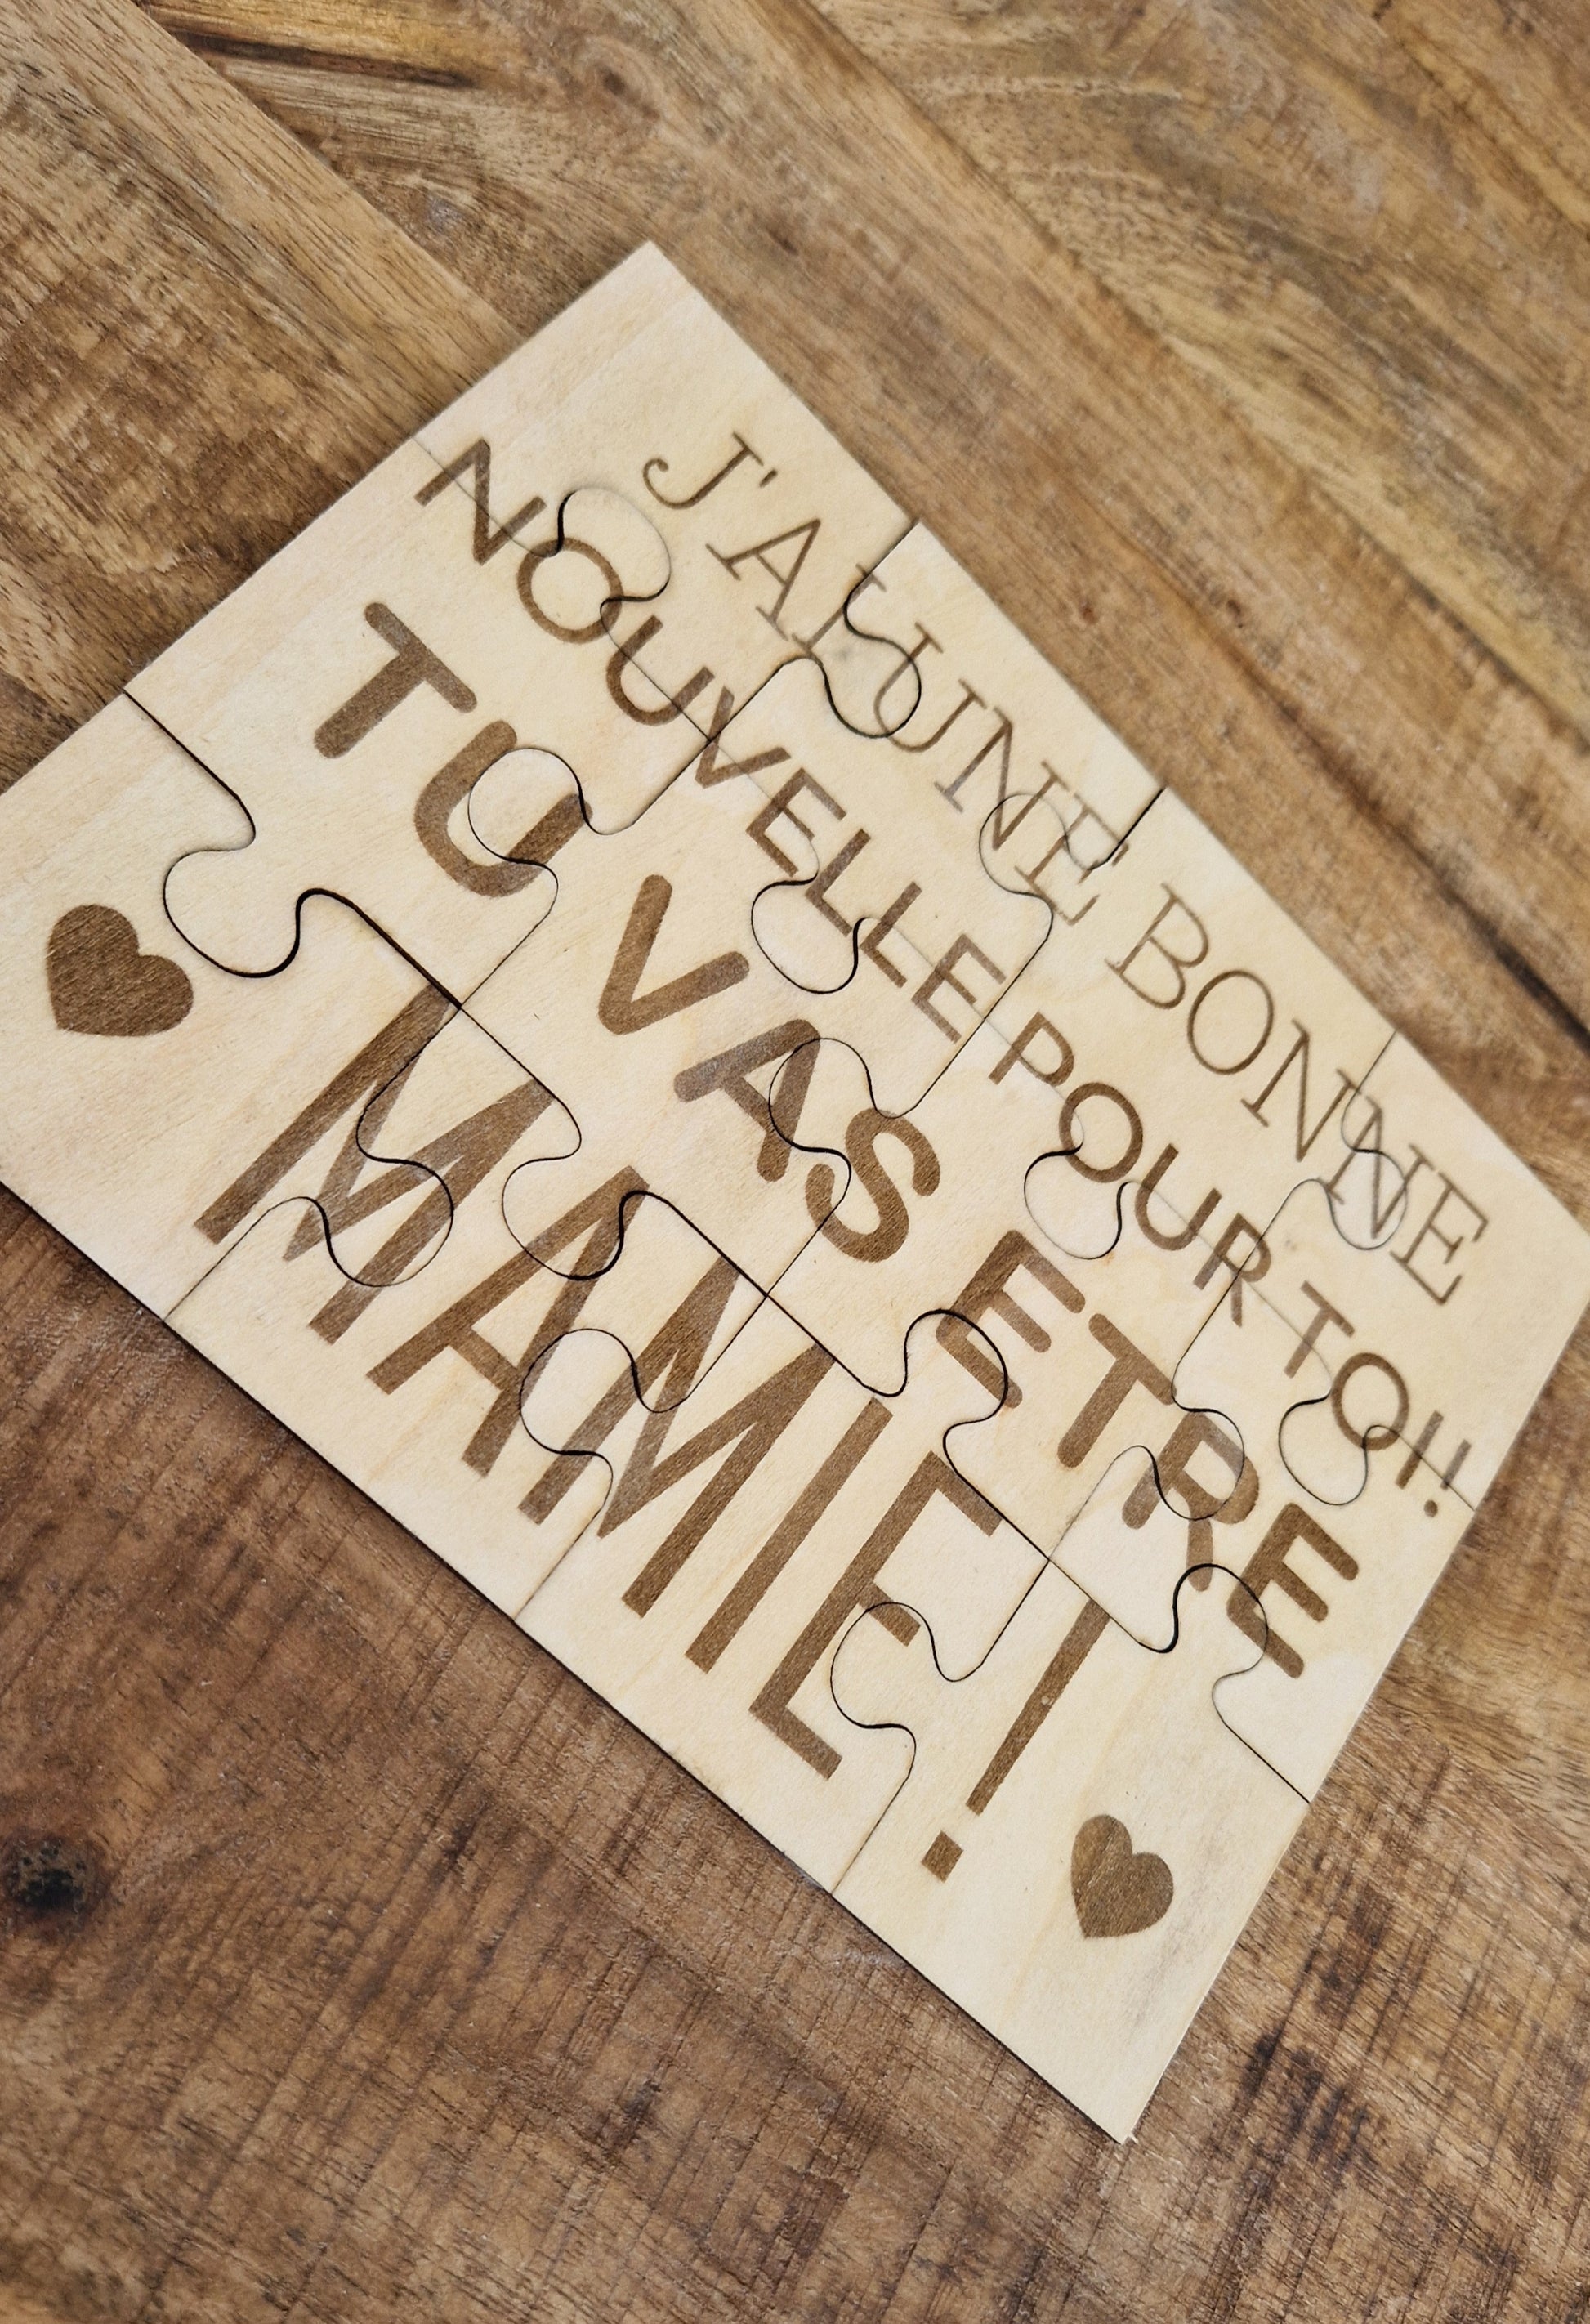 J'AI UNE BONNE
NOUVELLE POUR TOI!
TU VAS ETRE
MAMIE !